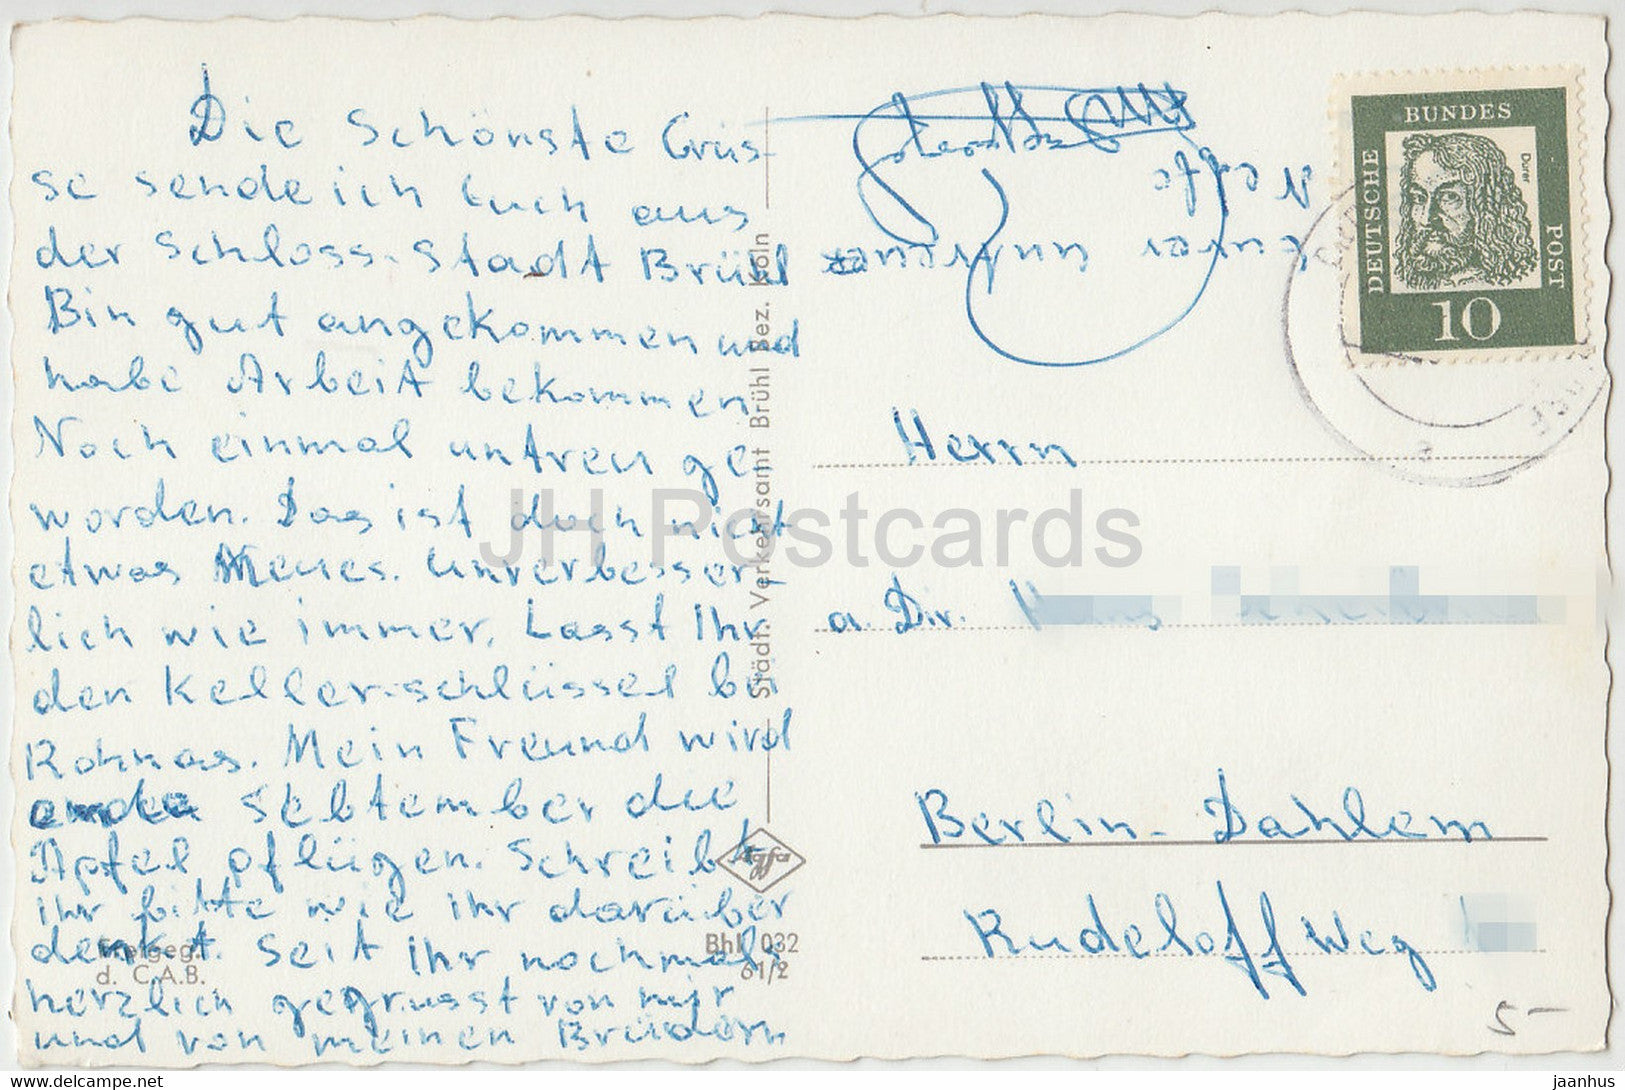 Die Schönste Grüs-
se sende ich Euch aus
der Schloss-Stadt Brühl
Bin gut angekommen und
habe Arbeit bekommen
Noch einmal untreu ge-
worden. Das ist doch nicht
etwas Neues. Unverbesser-
lich wie immer. Lasst Ihr
den Keller-schlüssel bei
Rohnas. Mein Freund wird
ende Sebtember die
Äpfel pflügen. Schreibt
ihr bitte wie ihr darüber
denkt. Seit Ihr nochmals
herzlich gegrüsst von mir
und von meinen Brüdern
Eurer untreue
Neffe
Städt. Verkehrsamt Brühl Bez. Köln
Agfa
Bhl 032
61/2
Freigeg.
d. C.A.B.
DEUTSCHE
BUNDES
POST
Dürer
10
Herrn
a. Dir.
Berlin-Dahlem
Rudeloff Weg
5-
JH Postcards
www.delcampe.net
jaanhus